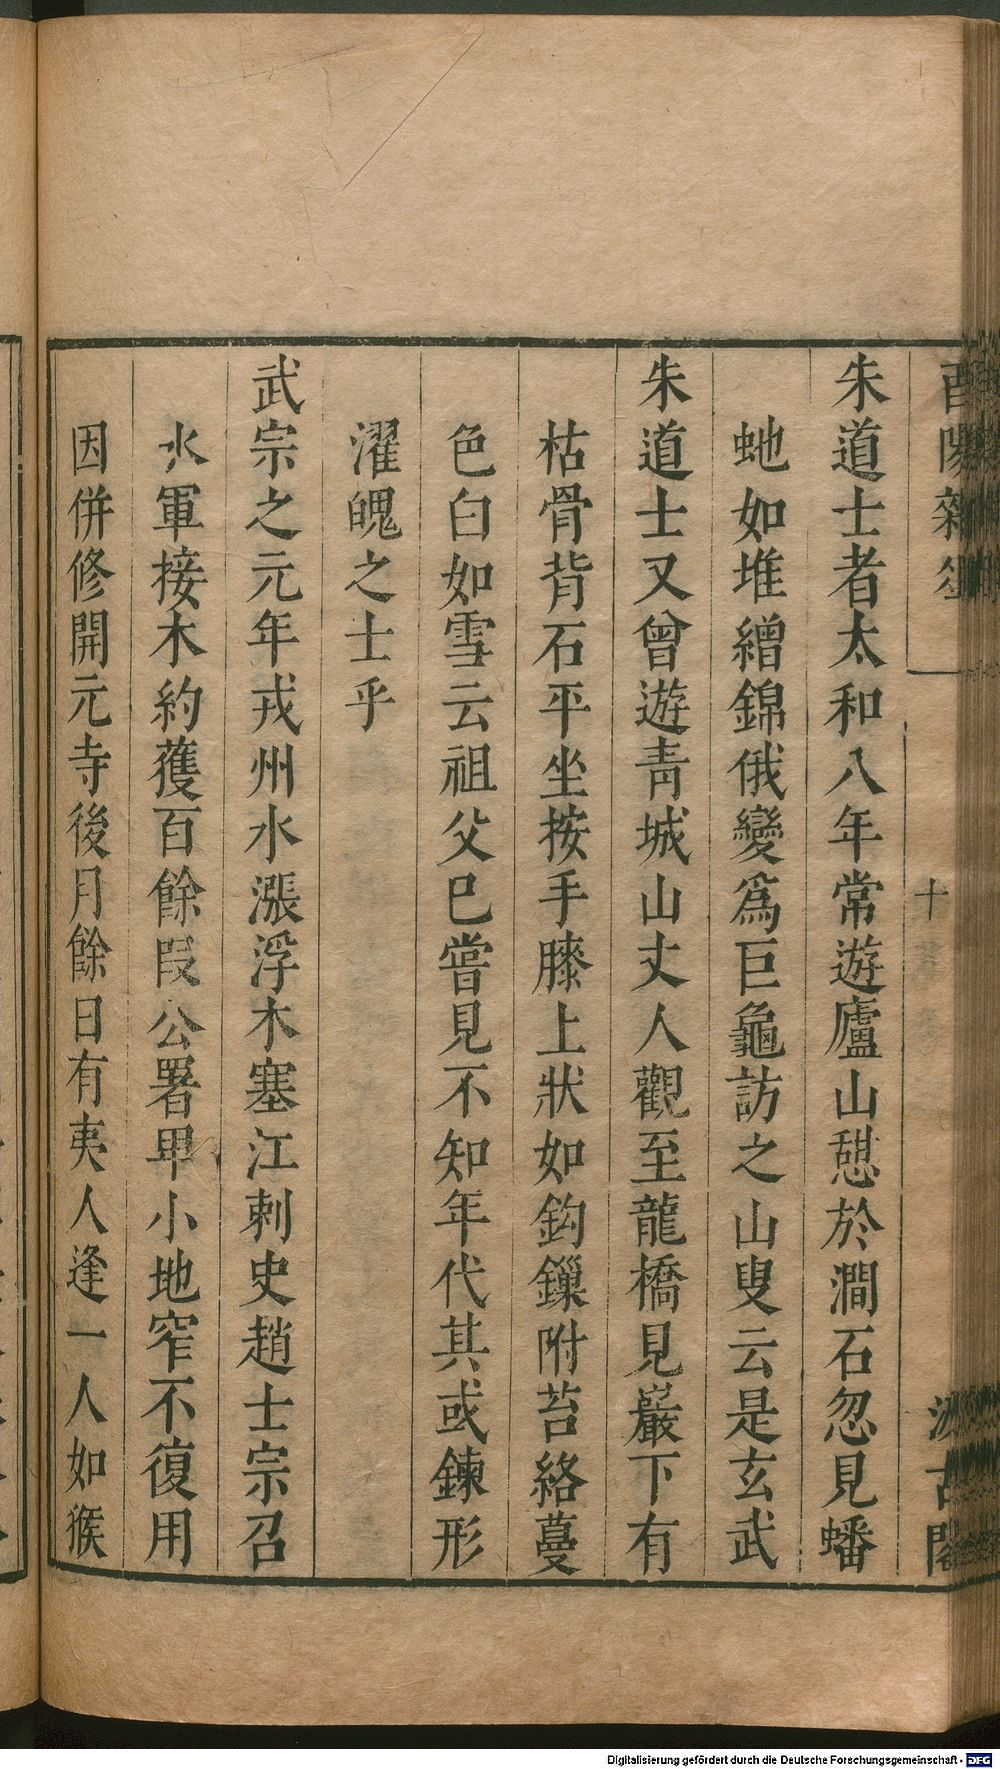 酉陽雜俎
十
汲古閣
朱道士者太和八年常遊廬山憇於澗石忽見蟠
虵如堆繒錦俄變爲巨龜訪之山叟云是玄武
朱道士又曾遊青城山丈人觀至龍橋見巖下有
枯骨背石平坐按手膝上狀如鈎鏁附苔絡蔓
色白如雪云祖父巳嘗見不知年代其或鍊形
濯魄之士乎
武宗之元年戎州水漲浮木塞江刺史趙士宗召
水軍接木約獲百餘段公署甲小地窄不復用
因併修開元寺後月餘日有夷人逢一人如猴
Digitalisierung gefördert durch die Deutsche Forschungsgemeinschaft - DFG